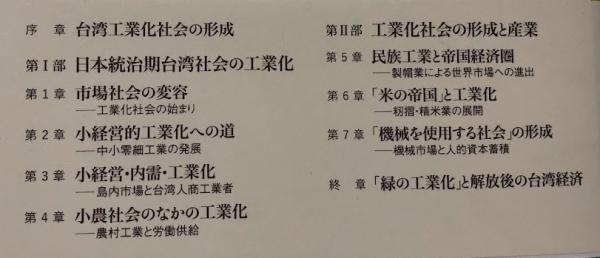 序 章 台湾工業化社会の形成
第Ⅰ部 日本統治期台湾社会の工業化
第1章 市場社会の変容
――工業化社会の始まり
第2章 小経営的工業化への道
――中小零細工業の発展
第3章 小経営・内需・工業化
――島内市場と台湾人商工業者
第4章 小農社会のなかの工業化
――農村工業と労働供給
第Ⅱ部 工業化社会の形成と産業
第5章 民族工業と帝国経済圏
――製帽業による世界市場への進出
第6章 「米の帝国」と工業化
――籾摺・精米業の展開
第7章 「機械を使用する社会」の形成
――機械市場と人的資本蓄積
終 章 「緑の工業化」と解放後の台湾経済